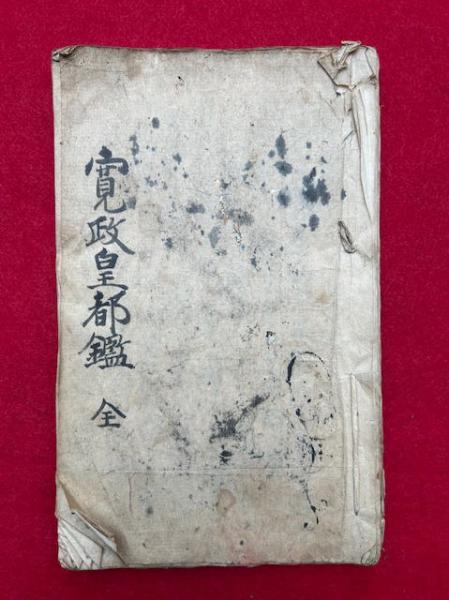 寛政皇都鑑 全